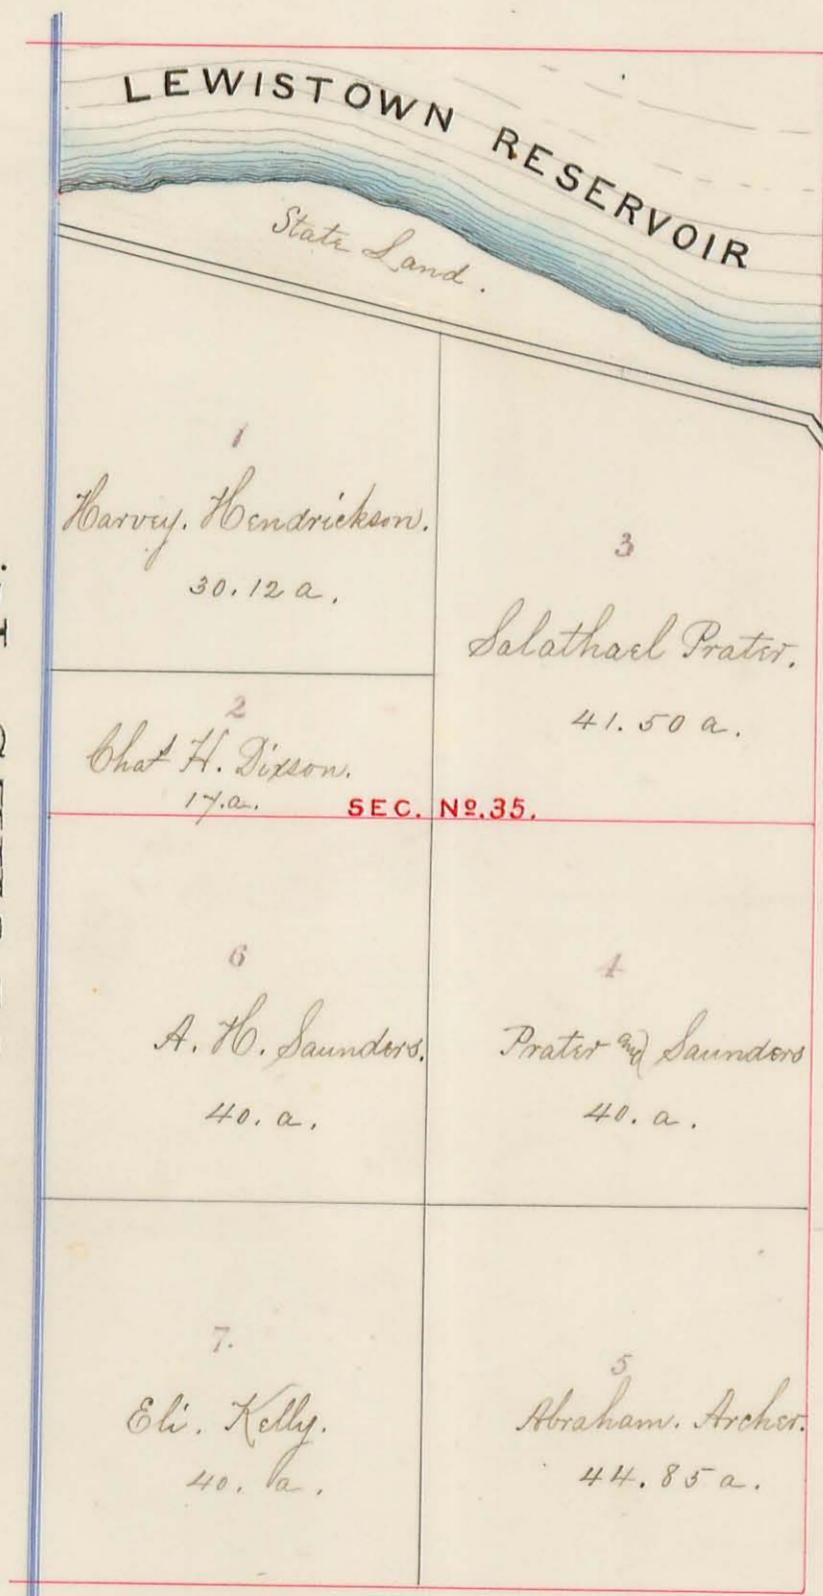 LEWISTOWN RESERVOIR
State Land.
1
Harvey. Hendrickson.
30.12 a.
3
Salathael Prater.
41.50 a.
2
Chas H. Dixson.
17.a.
SEC. Nº.35.
6
A. H. Saunders.
40. a.
4
Prater and Saunders
40. a.
7.
Eli. Kelly.
40. a.
5
Abraham. Archer.
44.85 a.